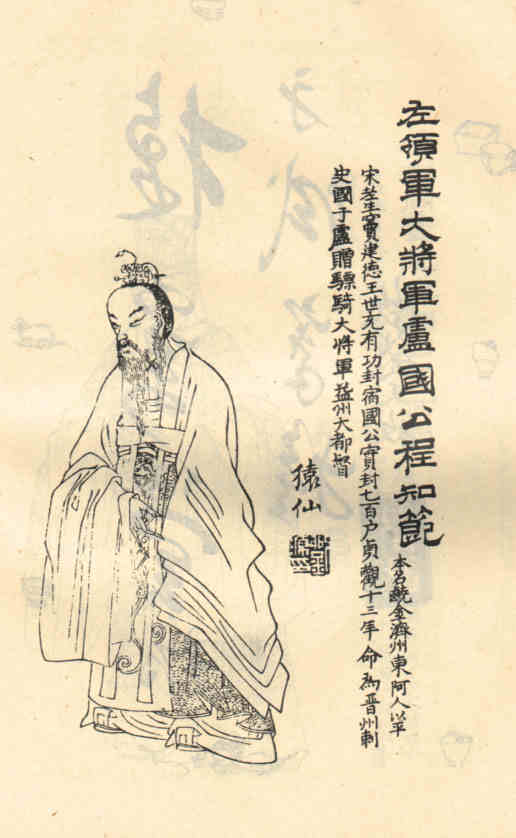 左領軍大將軍盧國公程知節
本名齩金濟州東阿人以平
宋老生竇建德王世充有功封宿國公實封七百户貞觀十三年命為晋州刺
史國于盧贈驃騎大將軍益州大都督
猿仙